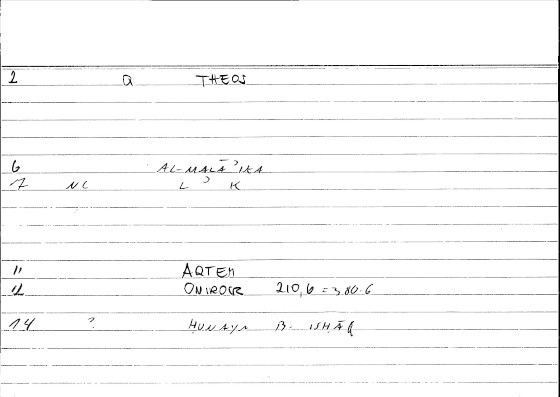 2 Q THEOS
6 AL-MALĀʾIKA
7 NC L ʾ K
11 ARTEM
12 ONIROCR 210,6 = 380.6
14 ? ḤUNAYN B. ISḤĀQ